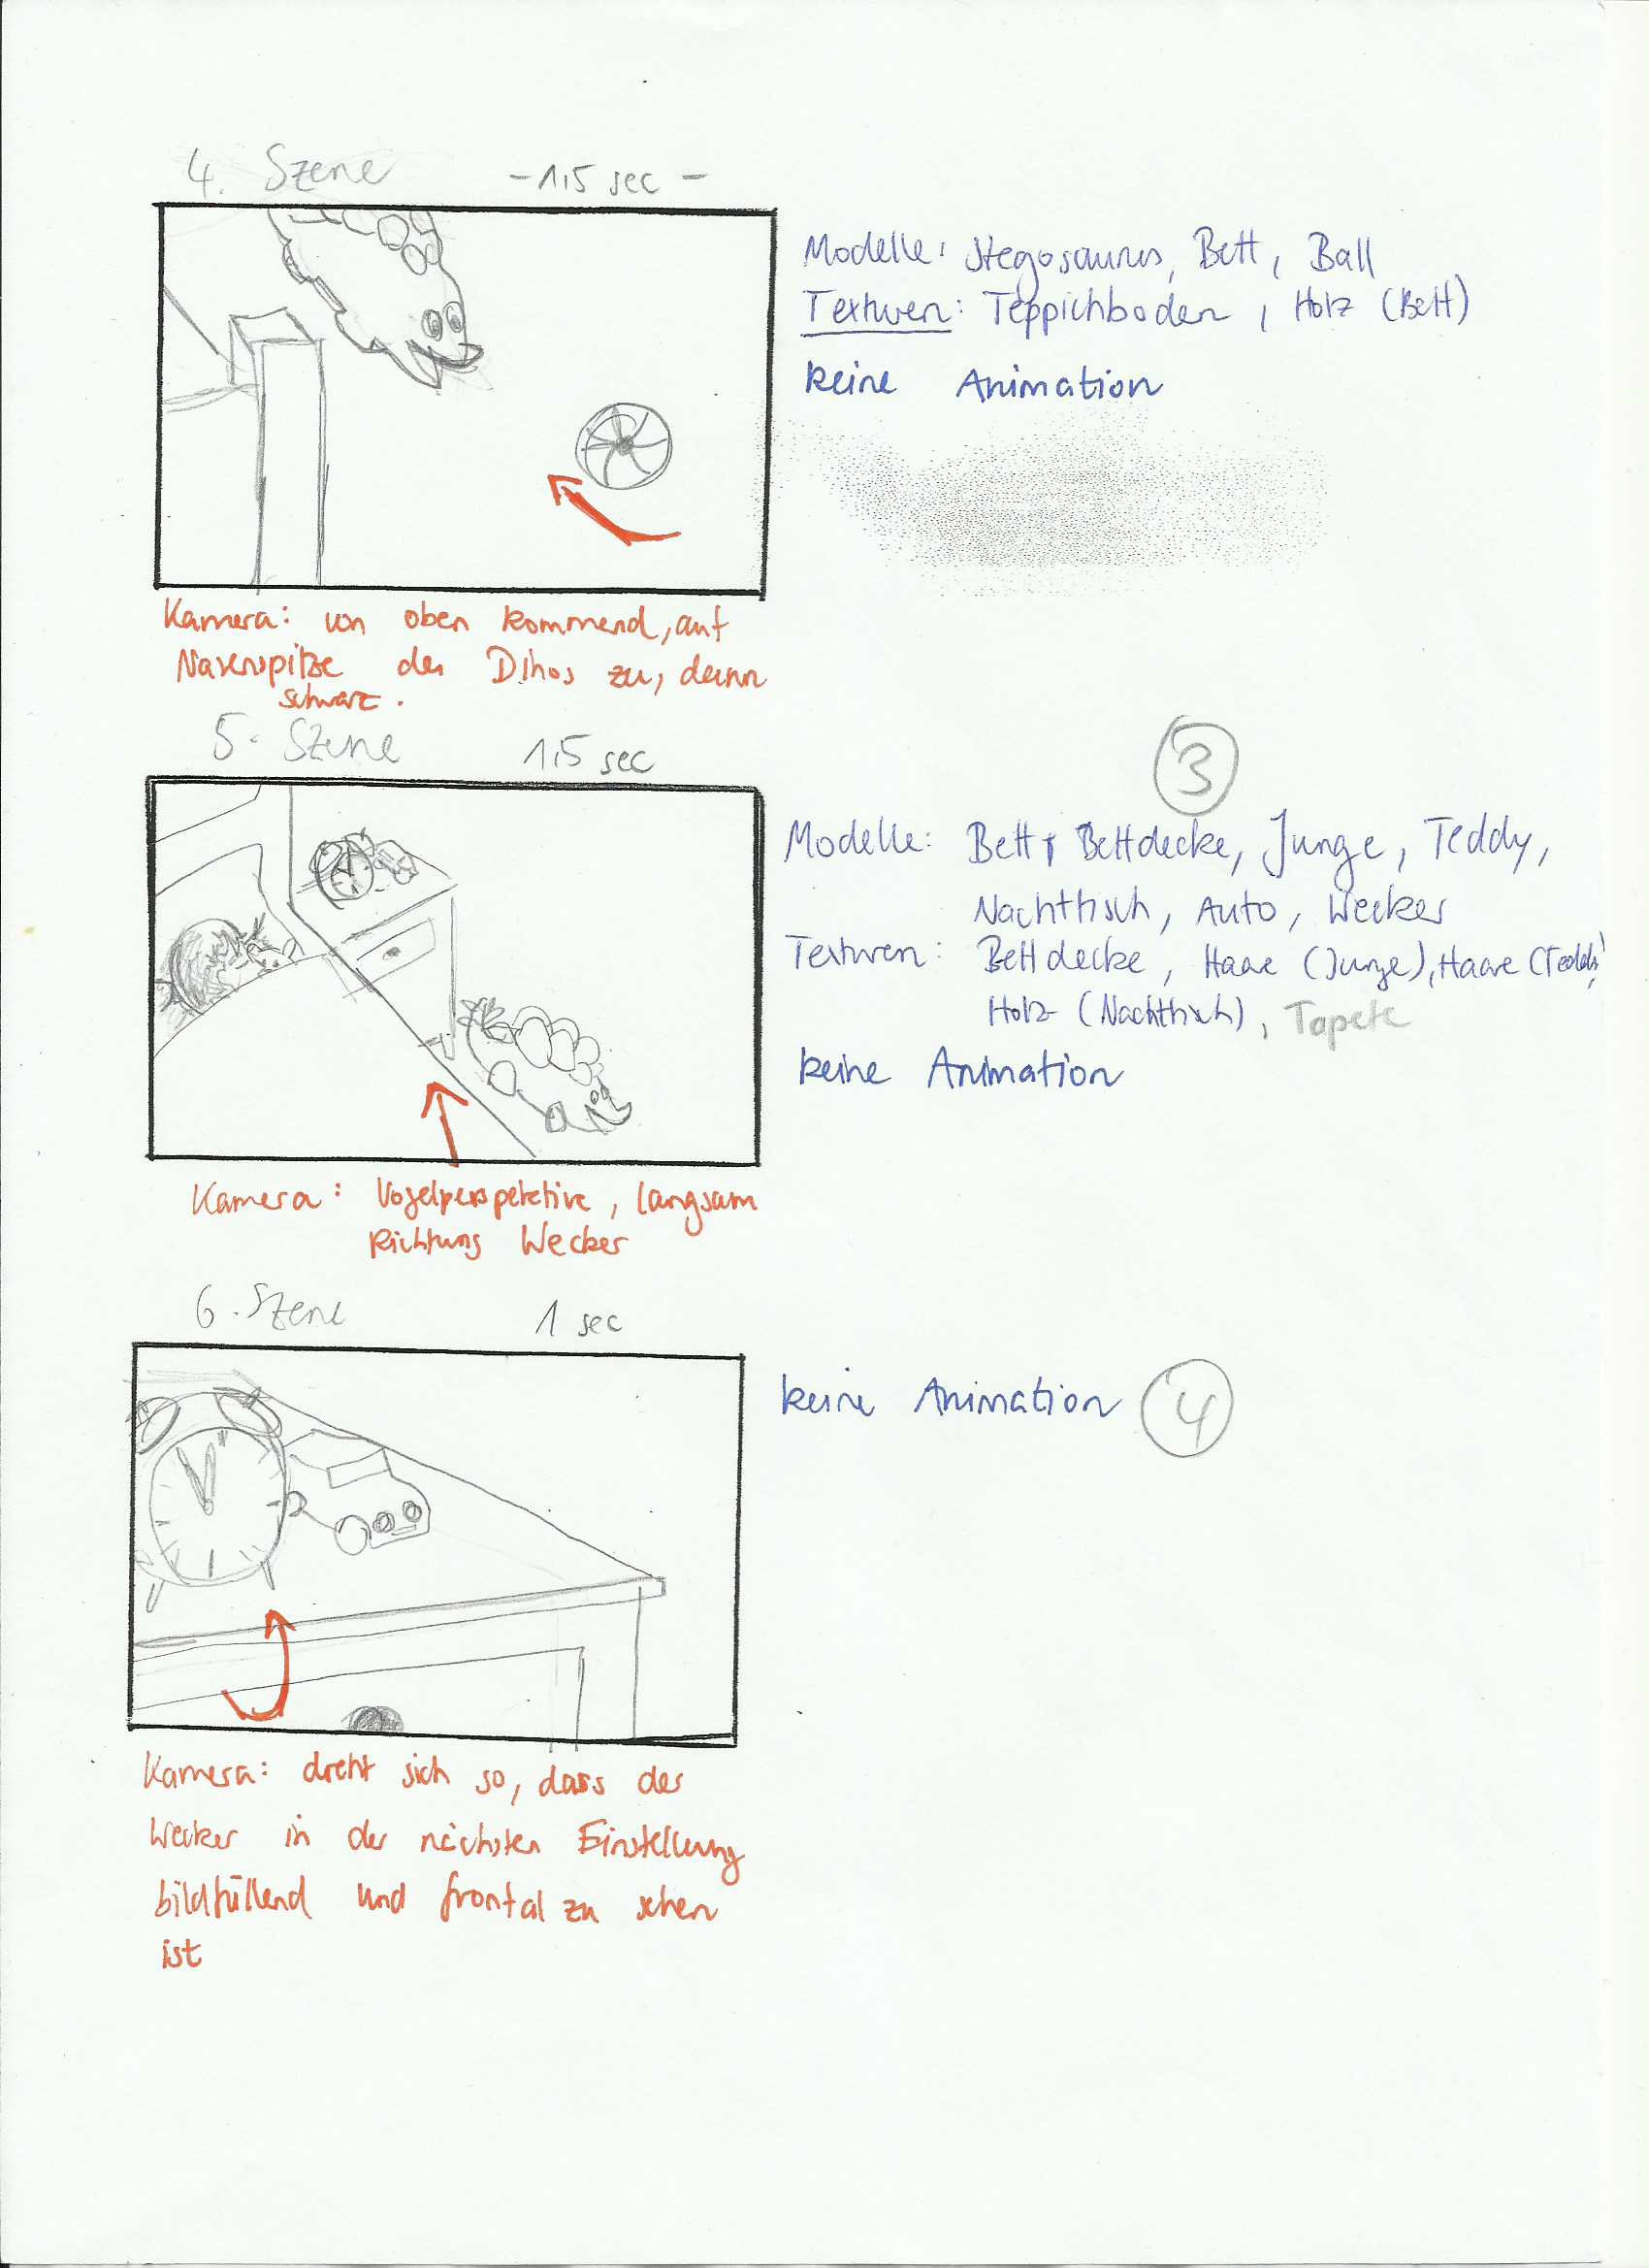 4. Szene -1,5 sec -
Modelle: Stegosaurus, Bett, Ball
Texturen: Teppichboden, Holz (Bett)
keine Animation
Kamera: von oben kommend, auf
Nasenspitze des Dinos zu, dann
schwarz.
5. Szene 1,5 sec
3
Modelle: Bett, Bettdecke, Junge, Teddy,
Nachttisch, Auto, Wecker
Texturen: Bettdecke, Haare (Junge), Haare (Teddy)
Holz (Nachttisch), Tapete
keine Animation
Kamera: Vogelperspektive, langsam
Richtung Wecker
6. Szene 1 sec
keine Animation 4
Kamera: dreht sich so, dass der
Wecker in der nächsten Einstellung
bildfüllend und frontal zu sehen
ist